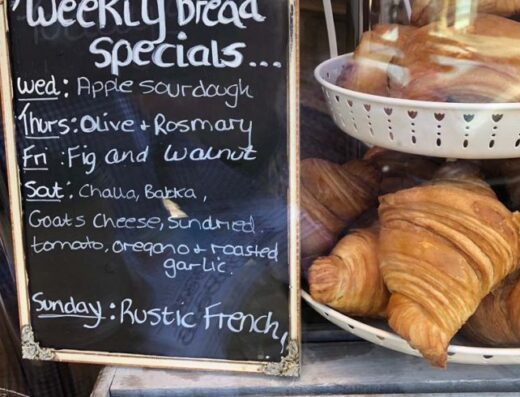 Weekly bread
specials...
Wed: Apple sourdough
Thurs: Olive + Rosmary
Fri : Fig and walnut
Sat: Challa, Babka,
Goats Cheese, Sundried
tomato, oregano + roasted
garlic.
Sunday: Rustic French,